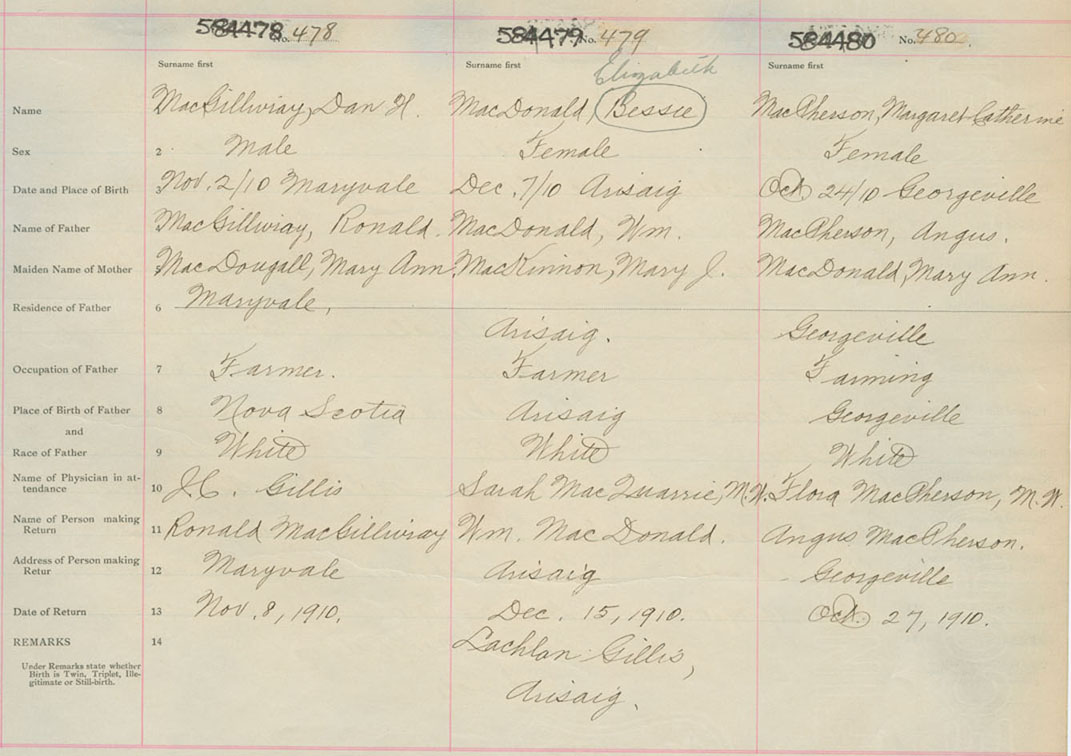 584478 No. 478 584479 No. 479 584480 No. 480
Surname first Surname first Elizabeth Surname first
Name MacGillivray, Dan H. MacDonald, Bessie MacPherson, Margaret Catherine
Sex 2 Male Female Female
Date and Place of Birth 3 Nov. 2/10 Maryvale Dec. 7/10 Arisaig Oct. 24/10 Georgeville
Name of Father MacGillivray, Ronald. MacDonald, Wm. MacPherson, Angus.
Maiden Name of Mother MacDougall, Mary Ann. MacKinnon, Mary J. MacDonald, Mary Ann.
Residence of Father 6 Maryvale, Arisaig. Georgeville
Occupation of Father 7 Farmer. Farmer Farming
Place of Birth of Father 8 Nova Scotia Arisaig Georgeville
and
Race of Father 9 White White White
Name of Physician in at-
tendance 10 J.C. Gillis Sarah MacQuarrie, M.W. Flora MacPherson, M.W.
Name of Person making
Return 11 Ronald MacGillivray Wm. MacDonald. Angus MacPherson.
Address of Person making
Retur 12 Maryvale Arisaig Georgeville
Date of Return 13 Nov. 8, 1910. Dec. 15, 1910. Oct. 27, 1910.
REMARKS 14 Lachlan Gillis,
Under Remarks state whether
Birth is Twin, Triplet, Ille-
gitimate or Still-birth.
Arisaig.